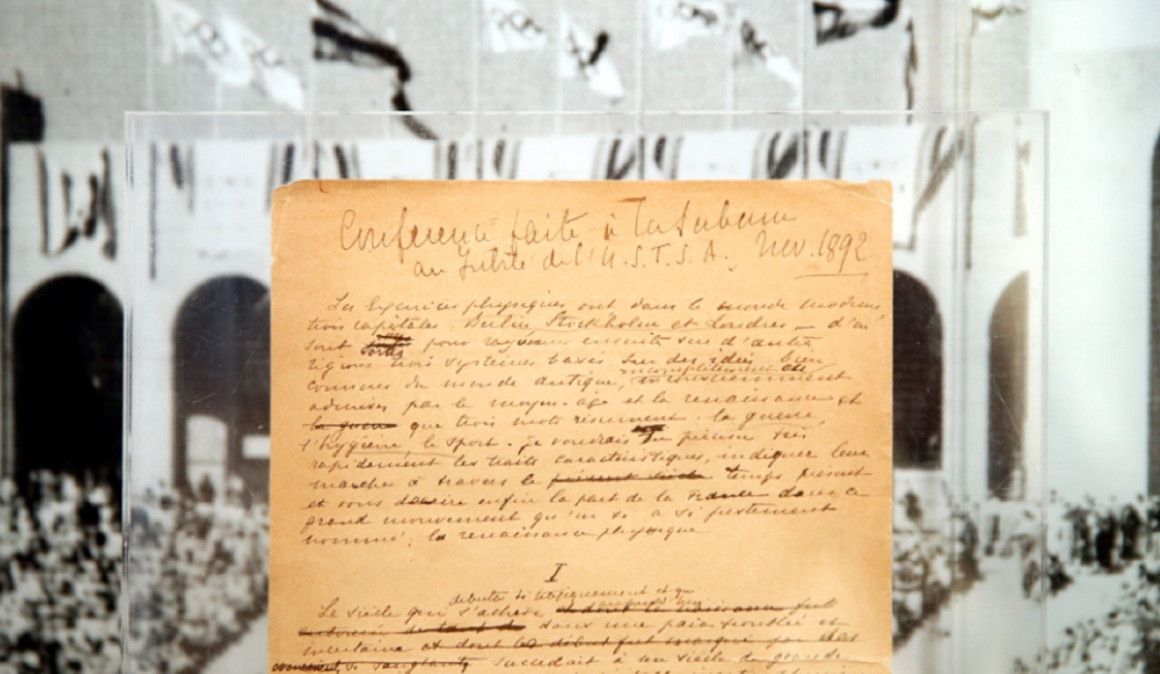 Conférence faite à la Sorbonne
au Jubilé de l'U.S.F.S.A. Nov. 1892
Les Exercices physiques ont dans le monde moderne
trois capitales : Berlin, Stockholm et Londres — d'où
sont
sortis pour rayonner ensuite sur d'autres
régions trois systèmes basés sur des idées bien
incomplètement et
connues du monde antique, inconsciemment
admises par le moyen-âge et la renaissance et
la guerre que trois mots résument : la guerre,
l'hygiène, le sport. Je voudrais en préciser très
rapidement les traits caractéristiques, indiquer leur
marche à travers le présent siècle temps présent
et vous dire enfin la part de la France dans ce
grand mouvement qu'on a si justement
nommé : la renaissance physique
I
Le siècle qui s'achève fut
dans une paix troublée et
incertaine et dont le début fut marqué par des
sanglants, succédait à un siècle de grande